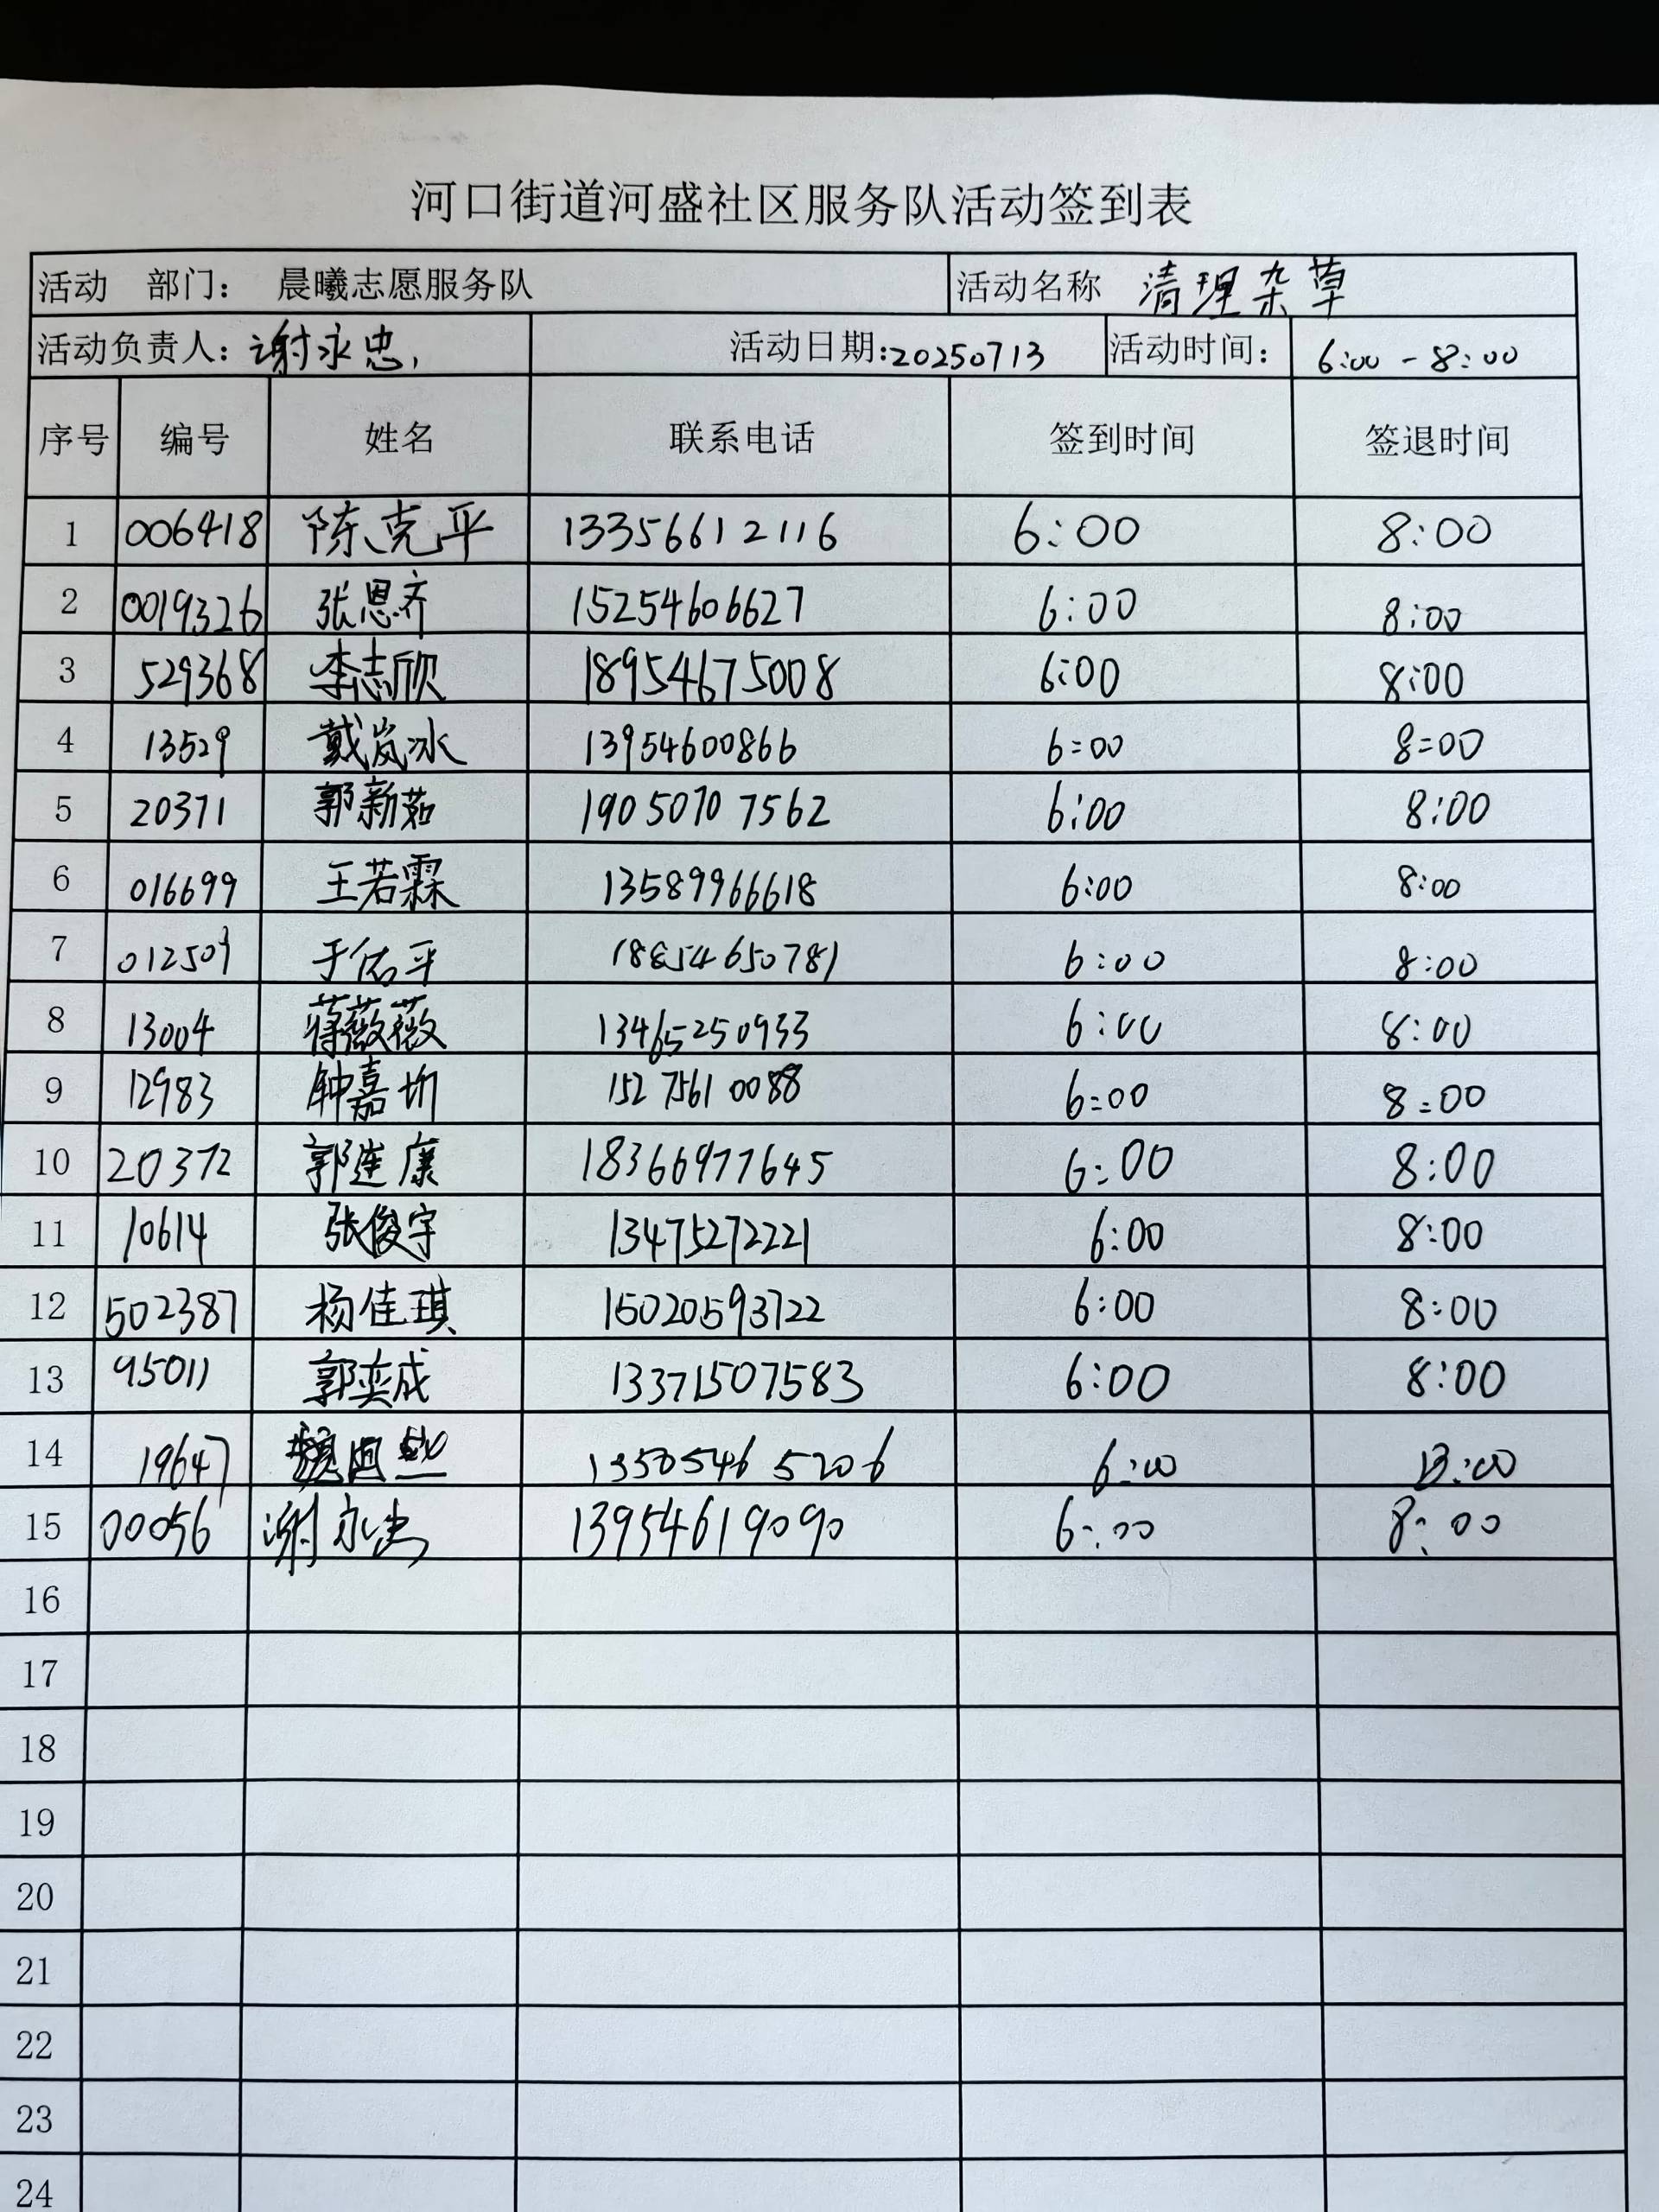 河口街道河盛社区服务队活动签到表
活动 部门: 晨曦志愿服务队 活动名称 清理杂草
活动负责人: 谢永忠 活动日期:20250713 活动时间: 6:00-8:00
序号 编号 姓名 联系电话 签到时间 签退时间
1 006418 陈克平 13356612116 6:00 8:00
2 0019326 张恩齐 15254606627 6:00 8:00
3 529368 李志欣 18954675008 6:00 8:00
4 13529 戴岚冰 13954600866 6:00 8:00
5 20371 郭新茹 19050707562 6:00 8:00
6 016699 王若霖 13589966618 6:00 8:00
7 012509 于佑平 18654650781 6:00 8:00
8 13004 蒋薇薇 13465250933 6:00 8:00
9 12983 钟嘉圻 15275610088 6:00 8:00
10 20372 郭连康 18366977645 6:00 8:00
11 10614 张俊宇 13475272221 6:00 8:00
12 502387 杨佳琪 15020593722 6:00 8:00
13 95011 郭奕成 13371507583 6:00 8:00
14 19647 13505465206 6:00
15 00056 谢永忠 13954619090 6:00 8:00
16
17
18
19
20
21
22
23
24